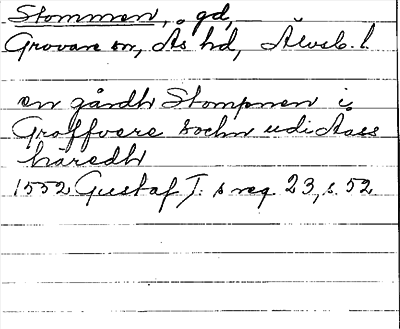 Stommen, gd,
Grovare sn, Ås hd, Älvsb. l.
en gårdh Stompnen i
Groffvere sochn udi Aass
häredh
1552 Gustaf I:s reg 23, s. 52